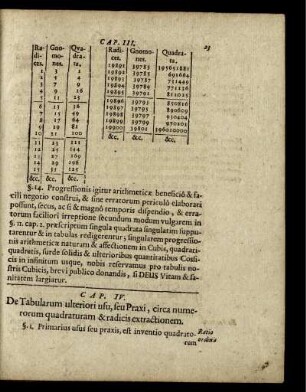 CAP. III. 23
Ra- Gno- Qva-
di- mo- dra-
ces. nes. ta.
1 3 1
2 5 4
3 7 9
4 9 16
5 11 25
6 13 36
7 15 49
8 17 64
9 19 81
10 21 100
11 23 121
12 25 144
13 27 169
14 29 196
15 31 225
&c. &c. &c.
Radi- Gnomo- Quadra-
ces. nes. ta.
19891 39783 395651881
19892 39785 691664
19893 39787 731449
19894 39789 771236
19895 39791 811025
19896 39793 850816
19897 39795 890609
19898 39797 930404
19899 39799 970201
19900 39801 396010000
&c. &c. &c.
§. 14. Progressionis igitur arithmeticæ beneficiô & fa-
cili negotio construi, & sine erratorum periculô elaborari
possunt, secus, ac si & magnô temporis dispendio, & erra-
torum faciliori irreptione secundum modum vulgarem in
§. 11. cap. 2. præscriptum singula quadrata singulatim suppu-
tarentur & in tabulas redigerentur; singularem progressio-
nis arithmeticæ naturam & affectionem in Cubis, quadrati-
quadratis, surde solidis & ulterioribus quantitatibus Cossi-
cis in infinitum usque, nobis reservamus pro tabulis no-
stris Cubicis, brevi publico donandis, si DEUS Vitam & sa-
nitatem largietur.
CAP. IV.
De Tabularum ulteriori usu, seu Praxi, circa nume-
rorum quadraturam & radicis extractionem.
§. 1. Primarius usus seu praxis, est inventio quadrato- Ratio
rum ordinis